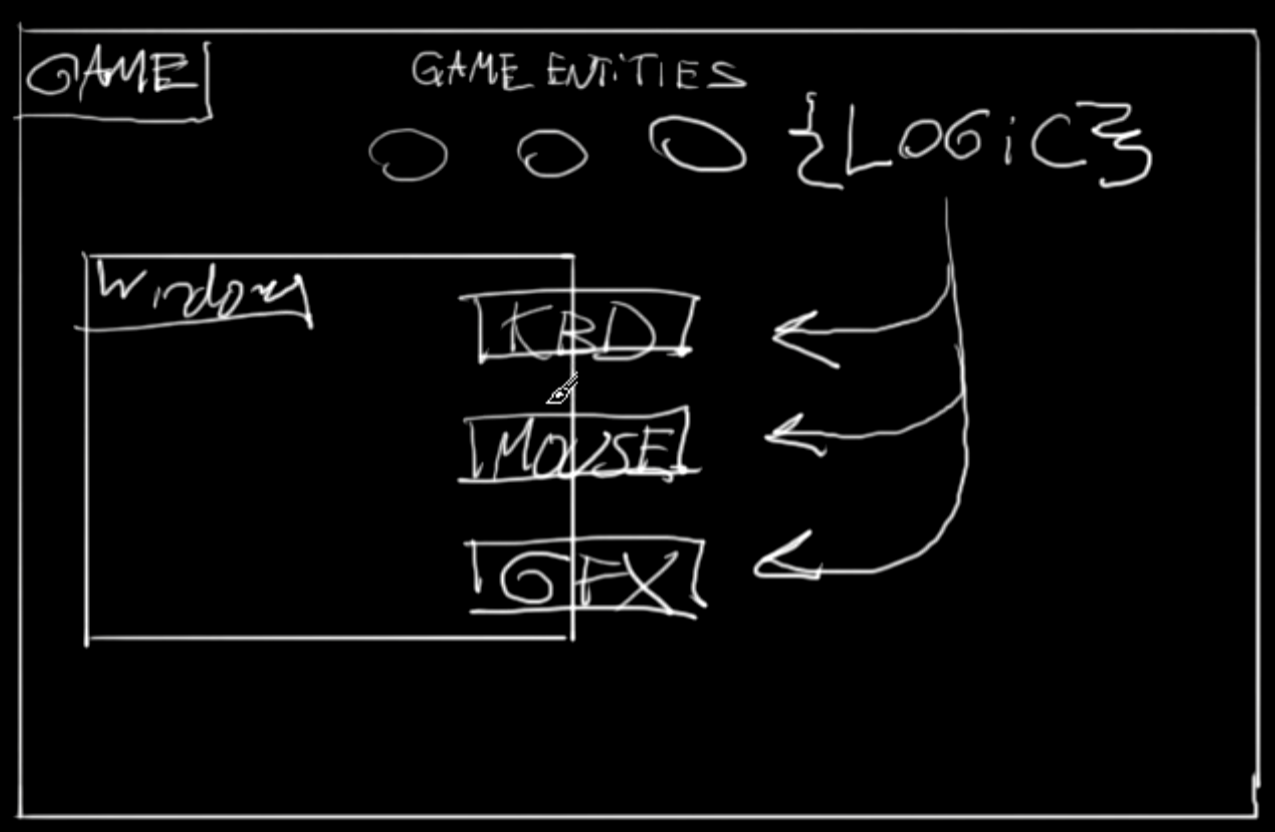 GAME
GAME ENTiTIES
{LOGiC}
Window
KBD
MOUSE
GFX